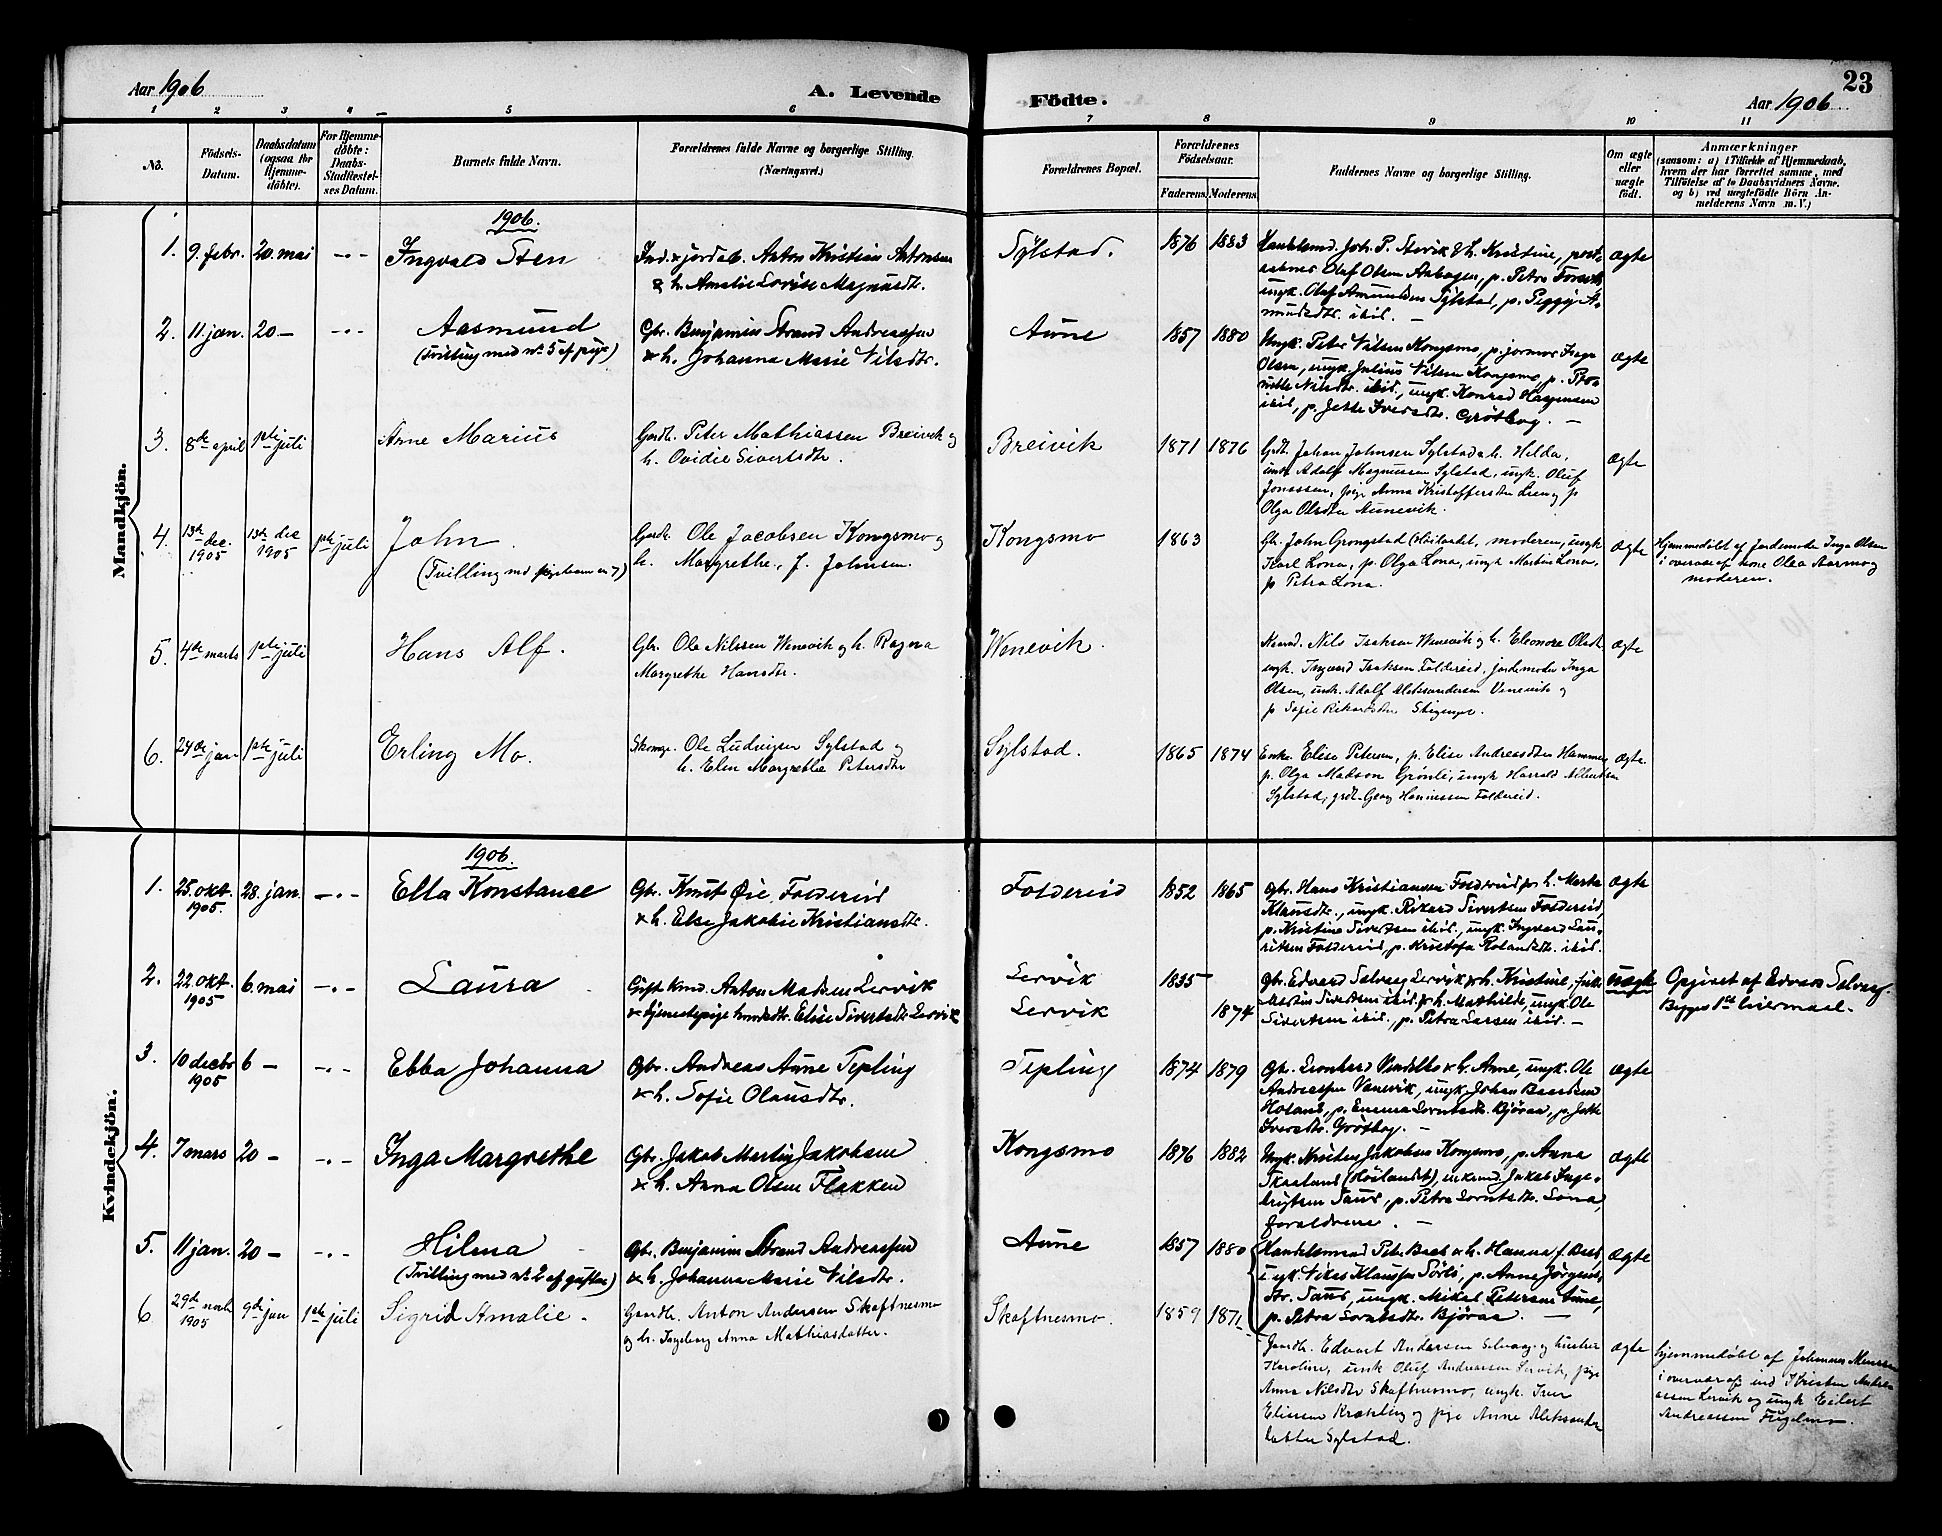 Aar 1906
A. Levende
Födte.
Aar 1906
23
1 2 3 4 5 6 7 8 9 10 11
No.
Födsels-Datum.
Daabsdatum (ogsaa for Hjemmedöbte).
For Hjemmedöbte: Daabs-Stadfæstelses Datum.
Barnets fulde Navn.
Forældrenes fulde Navne og borgerlige Stilling. (Næringsvei.)
Forældrenes Bopæl.
Forældrenes Födselsaar.
Faderens. Moderens.
Faddernes Navne og borgerlige Stilling.
Om ægte eller uægte födt.
Anmærkninger
(saasom: a) i Tilfælde af Hjemmedaab, hvem der har forrettet samme, med Tilföielse af to Daabsvidners Navne, og b) ved uægtefödte Börn Anmelderens Navn m. V.)
Mandkjön.
1906.
1. 9. febr. 20. mai -"- Ingvald Sten
Ind. & jordab. Anton Kristian Antonsen
& h. Amalie Lovise Magnusdtr.
Sylstad. 1876 1883
Handelsmd. Joh. P. & h. Kristine,
Olaf Olsen p. Petra
ungk. Olaf Amundsen Sylstad, p.
ægte
2. 11 jan. 20 - -"- Aasmund
(Tvilling med no. 5 af piger)
Gbr. Benjamin Strand Andreassen
& h. Johanna Marie Nilsdtr.
Aune 1857 1880
Ungk. Peter Nilsen Kongsmo, p. jormor Inga
Olsen, ungk. Julius Nilsen Kongsmo, p.
Nilsdtr. ibid., ungk. Konrad
ibid, p. Jette Iversdtr. Grötbog. -
ægte
3. 8de april 1ste juli Arne Marius
Gardb. Peter Mathiassen Breivik og
h. Ovidie Sivertsdtr.
Breivik 1871 1876
Grdb. Johan Johnsen Sylstad & h. Hilda,
Adolf Magnussen Sylstad, ungk. Oluf
Jonassen, pige Anna Kristoffersdtr p
Olga Olsdtr Aunevik.
ægte
4. 13de dec. 1905 13de dec 1905 1ste juli John.
(Tvilling med pigebarn no 7)
Gardb. Ole Jacobsen Kongsmo og
h. Margrethe, f. Johnsen.
Kongsmo 1863
Gb. John Grongstad Höilandet, moderen, ungk
Karl Lona, p. Olga Lona, ungk Martin Lona,
p. Petra Lona.
ægte
Hjemmedöbt af Jordemoder Inga Olsen
i overvær af kone Olea Aarmo og
moderen.
5. 4de marts 1ste juli Hans Alf.
Gbr. Ole Nilssen Wenevik og h. Ragna
Margrethe Hansdtr.
Wenevik.
Nils Isaksen Wenevik og h. Eleonore Olsdtr
ungk. Ingvard Isaksen Foldereid, jordemoder Inga
Olsen, ungk. Adolf Aleksandersen Venevik og
p Sofie Rikardsdtr
ægte
6. 24de jan 1ste juli Erling Mo.
Skomag. Ole Ludvigsen Sylstad og
h. Elen Margrethe Petersdtr
Sylstad. 1865 1874
Enke Elise Petersen, p. Elise Andreasdtr Hammer,
p. Olga Madsen Grönli, ungk Harrald Albertsen
Sylstad, grdb. Georg Foldereid.
ægte.
Kvindekjön.
1906.
1. 25. okt. 1905. 28. jan. -"- Ella Konstance
Gbr. Knut Öie, Foldereid
& h. Else Jakobie Kristiansdtr.
Foldereid 1852 1865
Gbr. Hans Kristiansen Foldereid & h. Marta
Klausdtr., ungk. Rikard Sivertsen Foldereid,
p. Kristine Sivertsen ibid., ungk. Ingvard Lauritsen
Foldereid, p. Kristofa Rolandsdtr. ibid.
ægte
2. 22. okt. 1905 6. mai -"- Laura
Gift Kmd. Anton Madsen Lervik
& tjenestepige Elise Sivertsdtr. Lervik
Lervik 1835 -
Lervik 1874
Gbr. Edvard Salvaag Lervik & h. Kristine,
Martin Sivertsen ibid. & h. Mathilde, ungk. Ole
Sivertsen ibid., p. Petra Larsen ibid. -
uægte
Opgivet af Edvard Salvaag.
Begges 1ste leiermaal.
3. 10 decbr 1905 6 - -"- Ebba Johanna
Gbr. Andreas Aune Tepling
& h. Sofie Olausdtr.
Tepling 1874 1879
Gbr. Leonhard & h. Anne, ungk. Ole
Andreassen Venevik, ungk. Johan
p. Emma Lorntsdtr. Björaa, p. Jette
Iversdtr. Grötbog. -
ægte
4. 7 mars 20 - -"- Inga Margrethe
Gbr. Jakob Martin Jakobsen
& h. Anna Olsen Flakken
Kongsmo 1876 1882
Ungk. Kristen Jakobsen Kongsmo, p. Anna
Skaaland (Höilandet), Jakob
p. Petra Lorntsdtr. Lona,
foraldrene. -
ægte
5. 11 jan. 20 - -"- Hilma
(Tvilling med no. 2 af gutter)
Gbr. Benjamin Strand Andreassen
& h. Johanna Marie Nilsdtr.
Aune 1857 1880
Handelsmand Petr. & h. Hanna f.
ungk. Klaussen p. Anne
ungk. Mikal Petersen Aune,
p. Petra Lorntsdtr. Björaa. -
ægte
6. 29de nov. 1905 9de jan 1ste juli Sigrid Amalie.
Gaardb. Anton Andersen Skaftnesmo
og h. Ingeborg Anna Mathiasdatter.
Skaftnesmo. 1859 1871
Gaardb. Edvart Andersen Selvaag og hustru
Karoline, ungk Oluf Andreassen Lervik, pige
Anna Nilsdtr Skaftnesmo, ungk. Iver
Eliassen og pige Anne Aleksanderdatter
Sylstad.
ægte
hjemmedöbt af Johannes
i overvær af ind Kristen Andreassen
Lervik og ungk Eidert
Andreassen